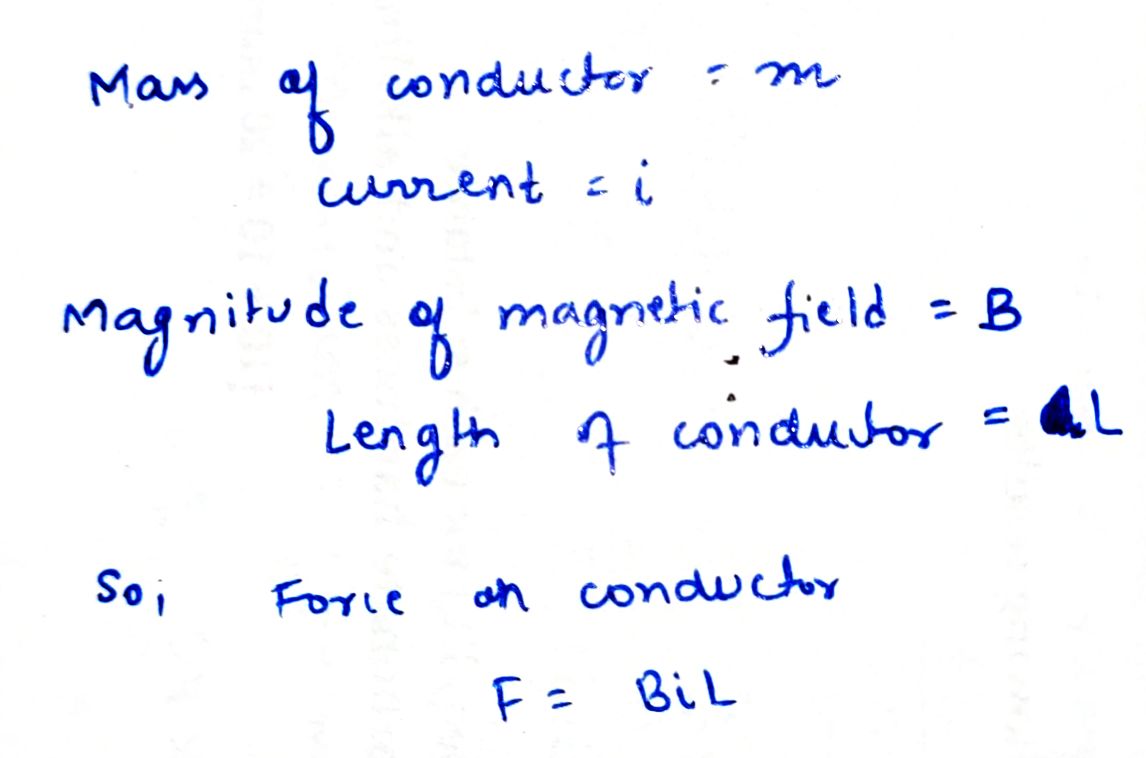 Mass of conductor = m
current = i
Magnitude of magnetic field = B
Length of conductor = L
So, Force on conductor
F = BiL